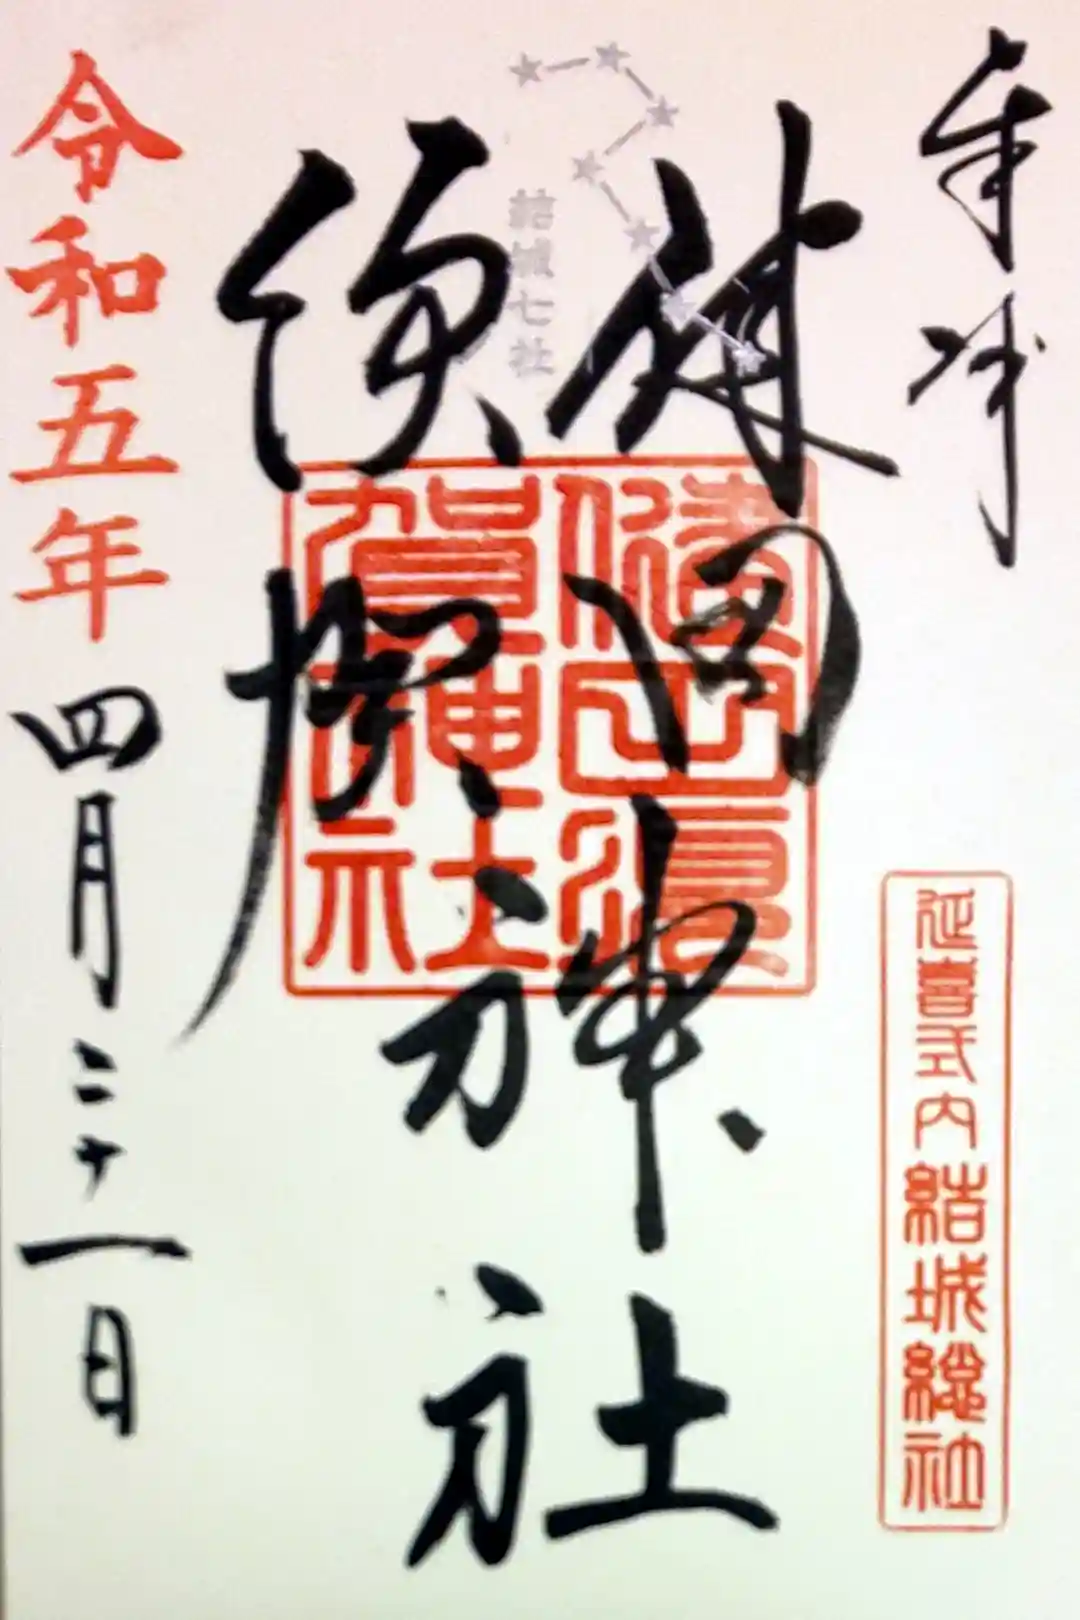 奉拝
延喜式内結城総社
結城七社
健田
須賀
神社
健田須
賀神社
令和五年四月二十一日